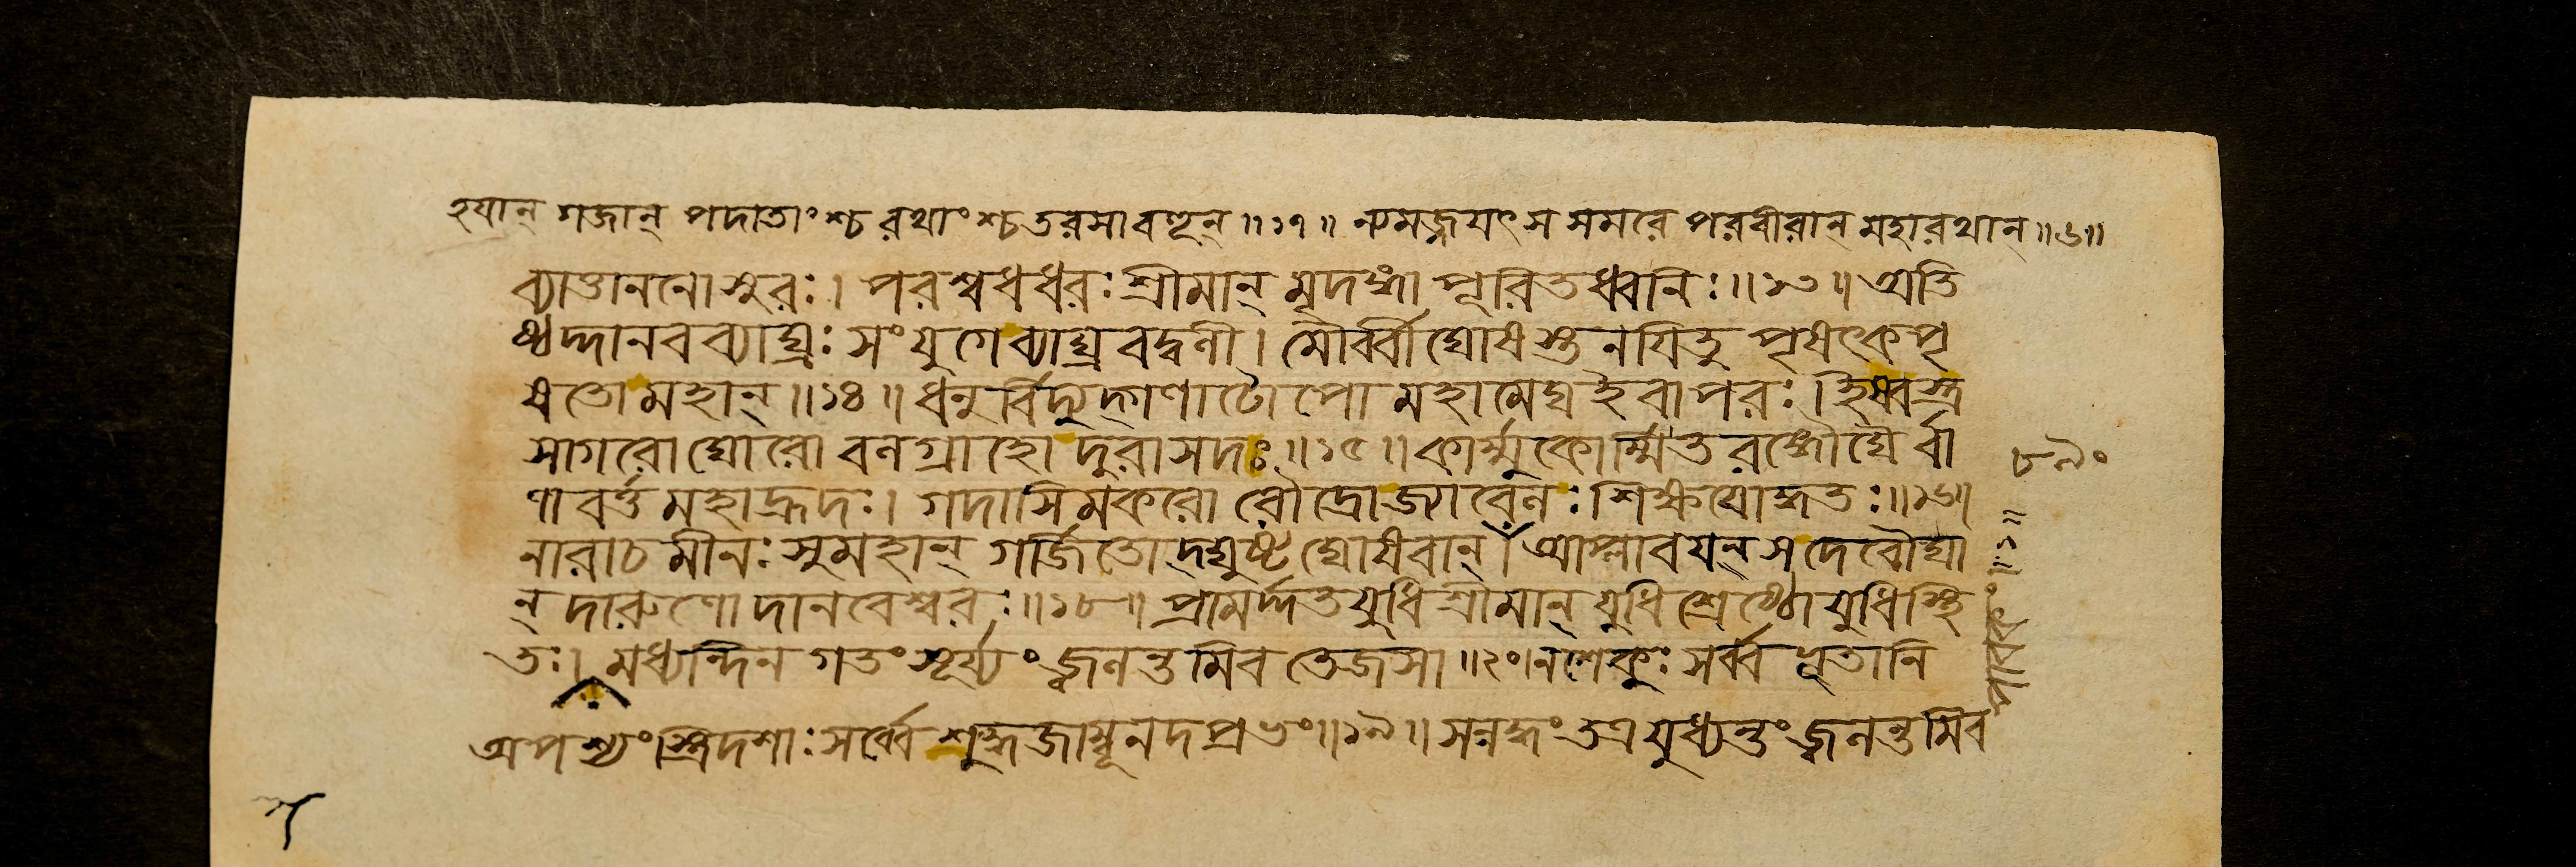 হযান্ গজান্ পদাতাংশ্চ রথাংশ্চ তরসা বহূন্ ॥১৭॥ ন্যমজ্জযৎ স সমরে পরবীরান্ মহারথান্ ॥৬॥
ব্যাত্তাননোঽসুরঃ। পরশ্বধধরঃ শ্রীমান্ মৃদঙ্গাপূরিতধ্বনিঃ॥১৩॥ অতি
ষ্ঠদ্দানবব্যাঘ্রঃ সংযুগে ব্যাঘ্রবদ্বলী। মৌর্ব্বীঘোষস্তনযিত্নু পৃষৎকপৃ
ষতো মহান্॥১৪॥ ধনুর্বিদ্যুদ্গণাটোপো মহামেঘ ইবাপরঃ।
সাগরো ঘোরো বলগ্রাহো দুরাসদঃ॥১৫॥ কার্ম্মুকোর্ম্মিতরঙ্গৌঘৈর্বা
ণাবর্ত্তমহাহ্রদঃ। গদাসিমকরো রৌদ্রো জ্যাবেলঃ শিক্ষযোদ্ধতঃ॥১৬॥
নারাচমীনঃ সুমহান্ গর্জিতোদ্ঘুষ্টঘোষবান্। আপ্লাবযন্ স দেবৌঘা
ন্ দারুণো দানবেশ্বরঃ॥১৮॥ প্রামর্দ্দত যুধি শ্রীমান্ যুধি শ্রেষ্ঠো যুধি স্থি
তঃ। মধ্যন্দিনগতং সূর্য্যং জ্বলন্তমিব তেজসা॥২০॥ ন শেকুঃ সর্ব্বভূতানি
৮৯০
অপশ্যংস্ত্রিদশাঃ সর্ব্বে শুদ্ধজাম্বূনদপ্রভং॥১৯॥ সন্নদ্ধং তত্র যুধ্যন্তং জ্বলন্তমিব